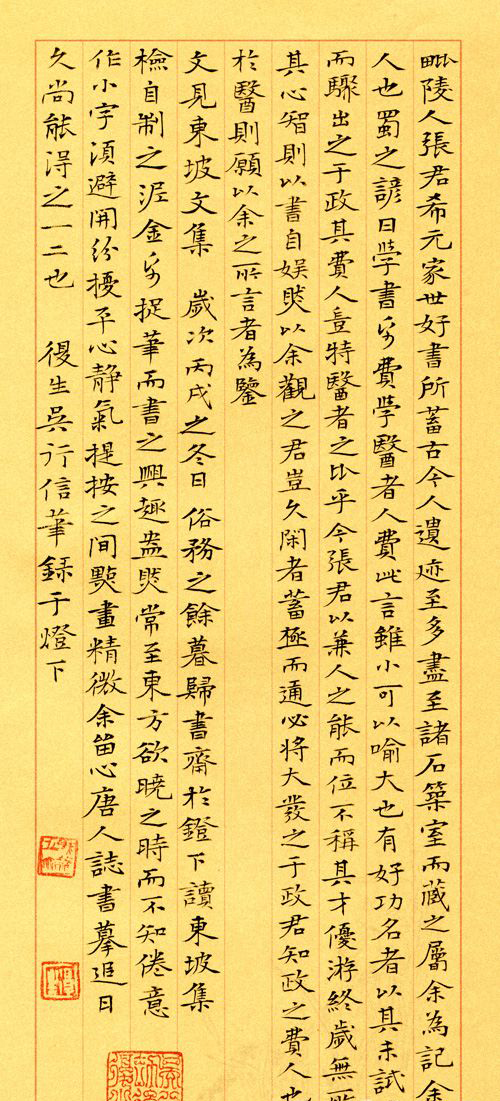 毗陵人張君希元家世好書所蓄古今人遺迹至多盡至諸石築室而藏之屬余為記余
人也蜀之諺曰學書帋費學醫者人費此言雖小可以喻大也有好功名者以其未試
而驟出之于政其費人豈特醫者之比乎今張君以兼人之能而位不稱其才優游終歲無所
其心智則以書自娛然以余觀之君豈久閑者蓄極而通必將大發之于政君知政之費人也
於醫則願以余之所言者為鑒
文見東坡文集 歲次丙戌之冬日 俗務之餘暮歸書齋於鐙下讀東坡集
檢自制之泥金帋捉筆而書之興趣盎然常至東方欲曉之時而不知倦意
作小字須避開紛擾平心靜氣提按之间點畫精微余留心唐人誌書摹追日
久尚能得之一二也 後生吳行信筆錄于燈下